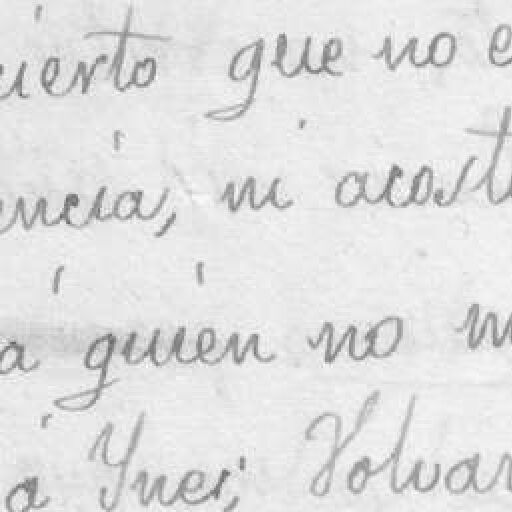 cierto que no e
encia, ni acost
a quien no m
a Ynes; Volvar